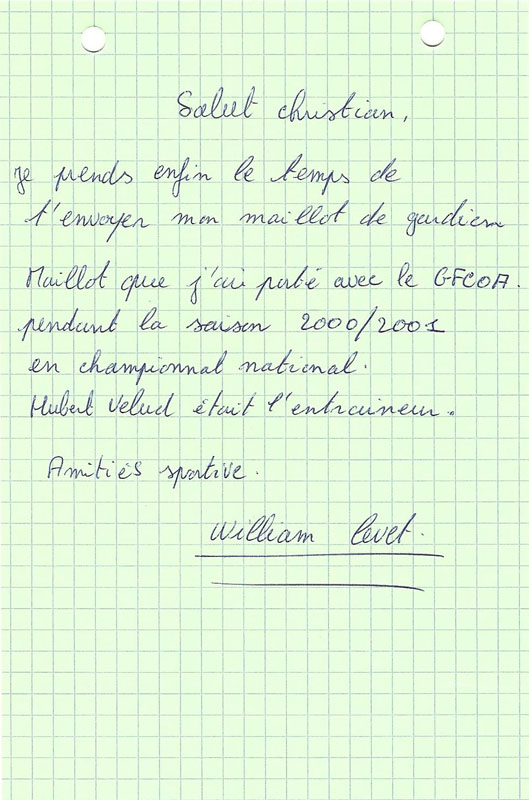 Salut christian,
Je prends enfin le temps de
t'envoyer mon maillot de gardien
Maillot que j'ai porté avec le GFCOA.
pendant la saison 2000/2001
en championnat national.
Hubert Velud était l'entraineur.
Amitiés sportive.
William Levet.